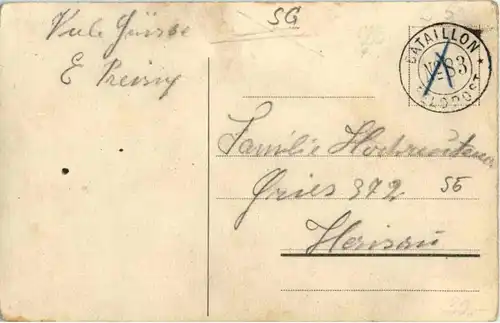 SG
Viele Grüsse
E Preisig
BATAILLON
No 83
FELDPOST
Familie Hochreutener
Gries 372
SG
Herisau